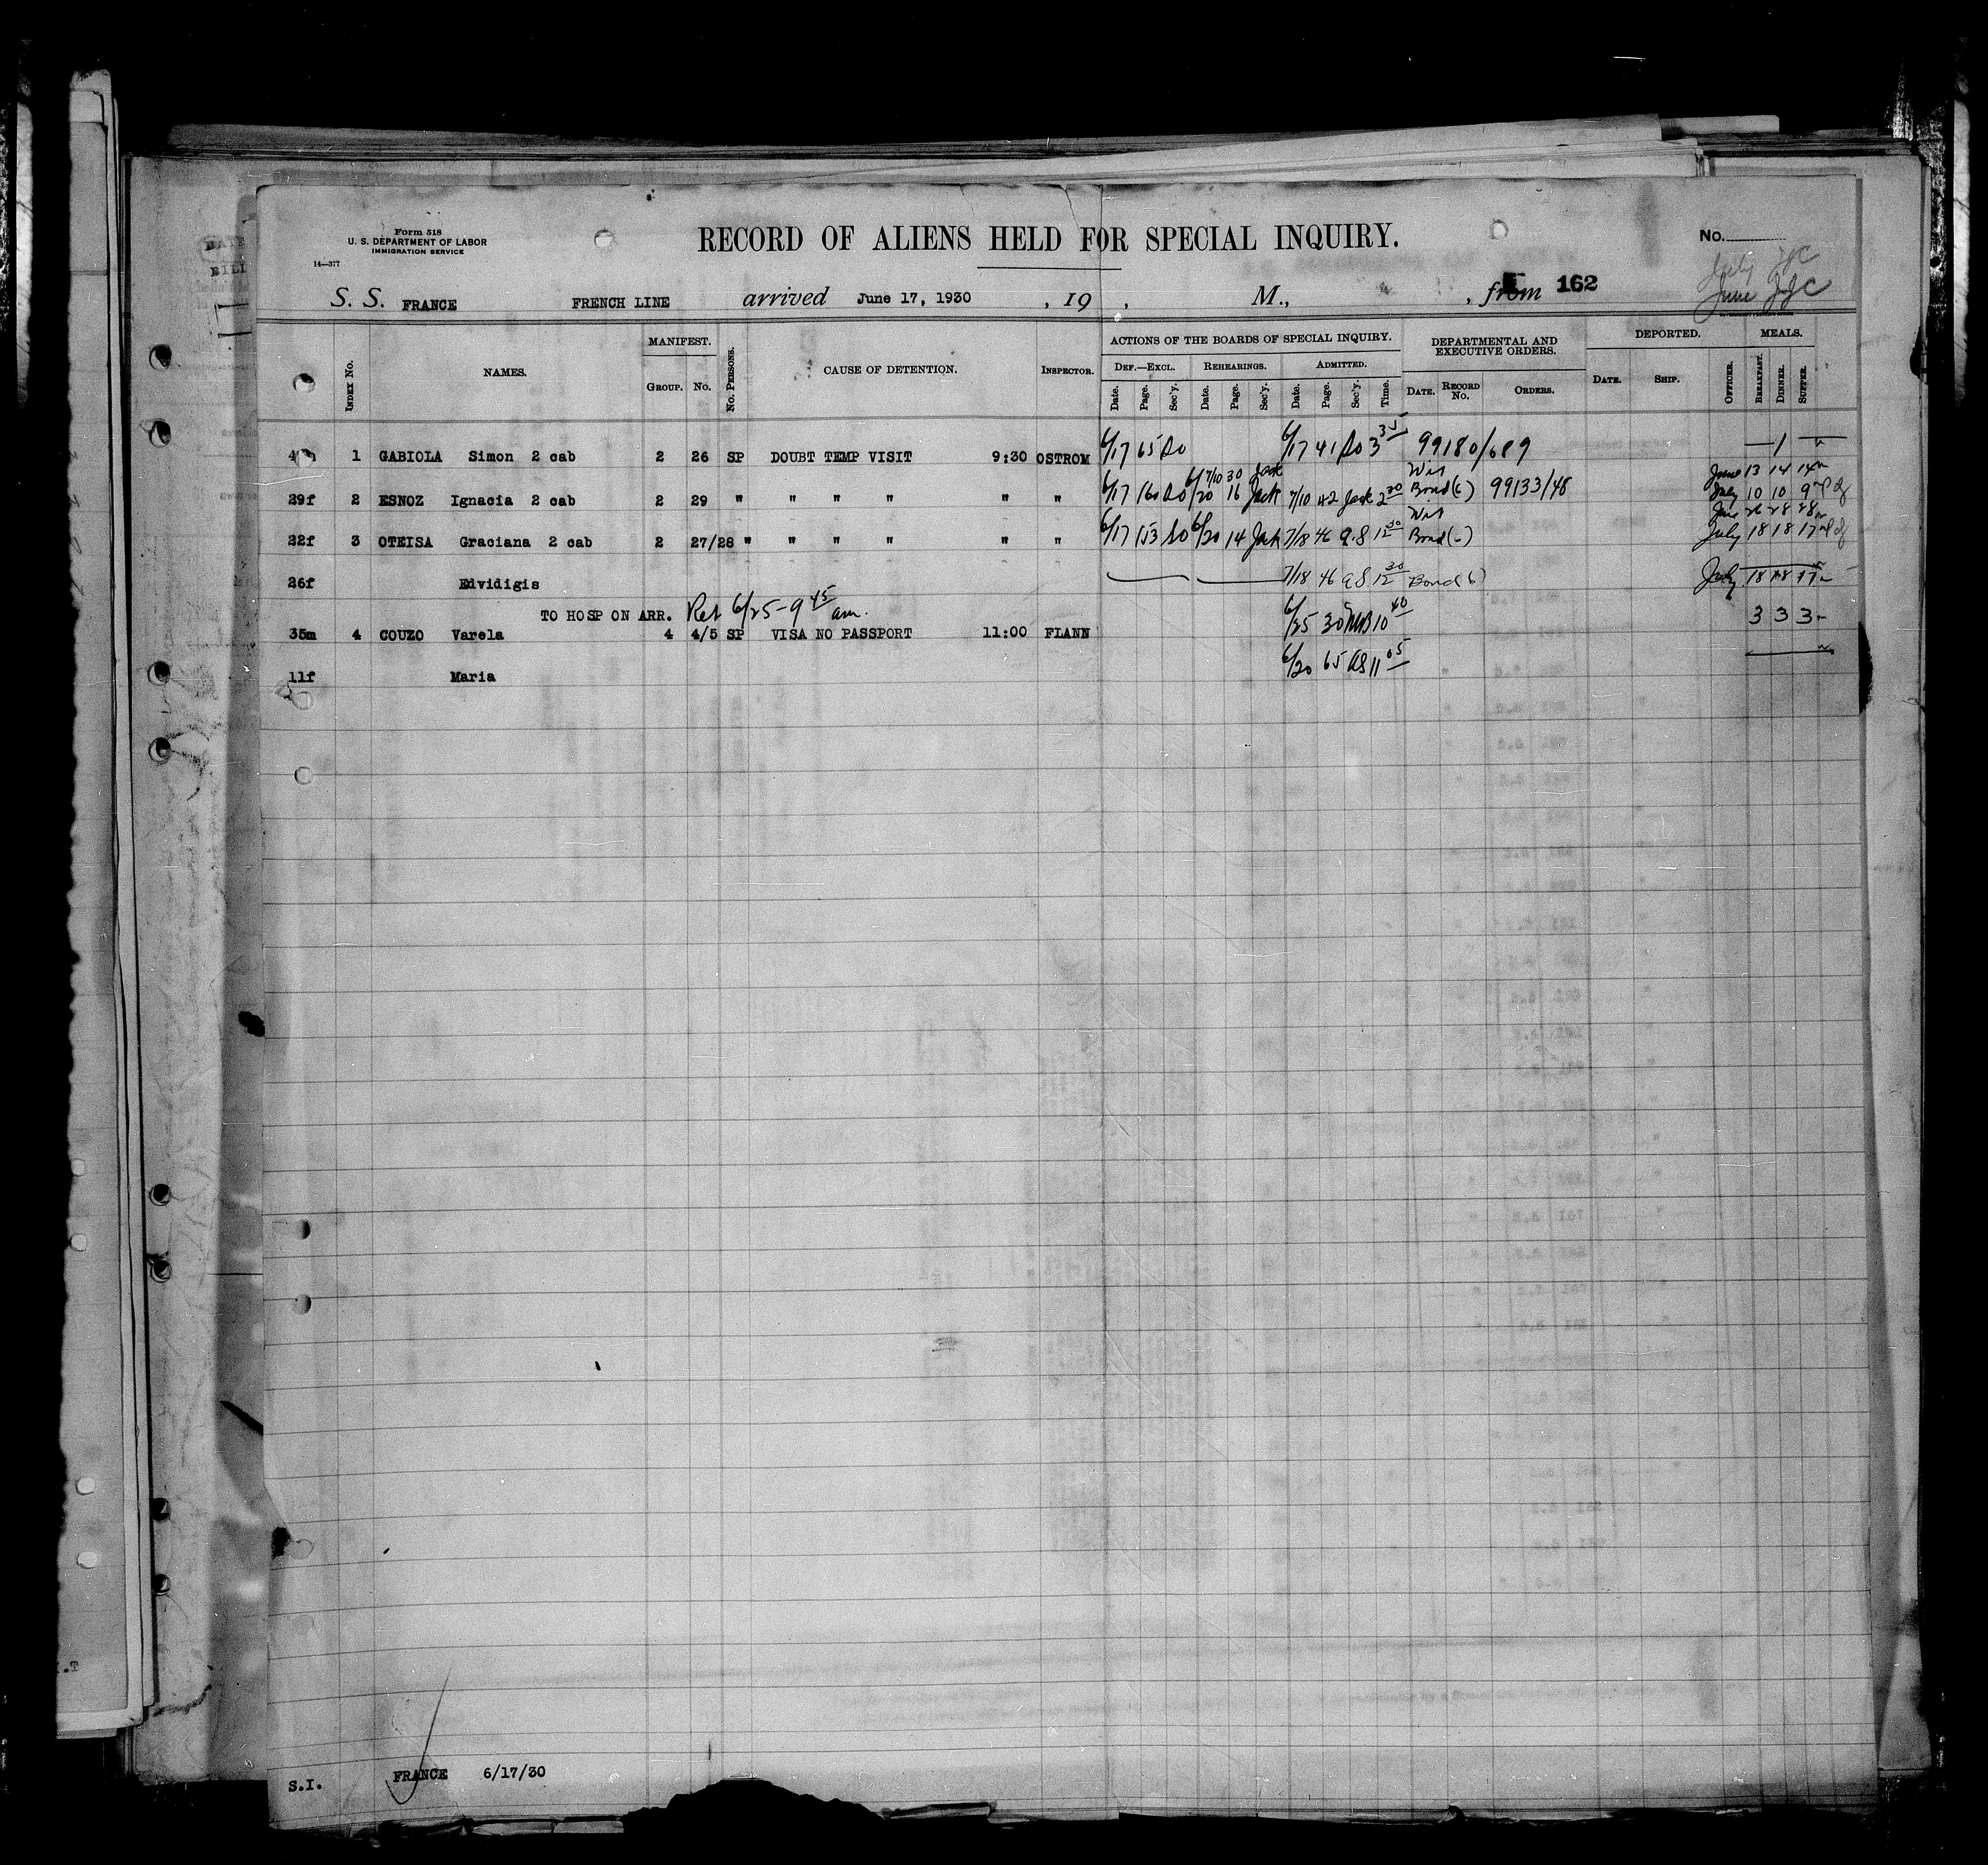 Form 518
U. S. DEPARTMENT OF LABOR
IMMIGRATION SERVICE
14—377
RECORD OF ALIENS HELD FOR SPECIAL INQUIRY.
No.
July JJC
June JJC
S. S. FRANCE FRENCH LINE arrived June 17, 1930 , 19 , M., , from 162
INDEX NO. NAMES. MANIFEST. GROUP. NO. NO. PERSONS. CAUSE OF DETENTION. INSPECTOR. ACTIONS OF THE BOARDS OF SPECIAL INQUIRY. DEPARTMENTAL AND EXECUTIVE ORDERS. DEPORTED. MEALS.
DEF.—EXCL. REHEARINGS. ADMITTED.
Date. Page. Sec'y. Date. Page. Sec'y. Date. Page. Sec'y. Time. DATE. RECORD NO. ORDERS. DATE. SHIP. OFFICER. BREAKFAST. DINNER. SUPPER.
1 GABIOLA Simon 2 cab 2 26 SP DOUBT TEMP VISIT 9:30 OSTROM 6/17 65 DO 6/17 41 DO 3 35 99180/689 — 1 —
7/10 30 Jack June 13 14 14
29f 2 ESNOZ Ignacia 2 cab 2 29 " " " " " " " 6/17 160 DO 6/20 16 Jack 7/10 42 Jack 2 30 Bond (6) 99133/48 July 10 10 9
June 26 28 28
22f 3 OTEISA Graciana 2 cab 2 27/28 " " " " " " " 6/17 153 DO 6/20 14 Jack 7/18 46 a.S 12 30 Bond (6) July 18 18 17
26f Edvidigis 7/18 46 a S 12 30 Bond 6) July 18 18 17
TO HOSP ON ARR. Ret 6/25 - 9 45 am.
35m 4 COUZO Varela 4 4/5 SP VISA NO PASSPORT 11:00 FLANN 6/25 30 MB 10 40 3 3 3
11f Maria 6/20 65 AS 11 05
S.I. FRANCE 6/17/30